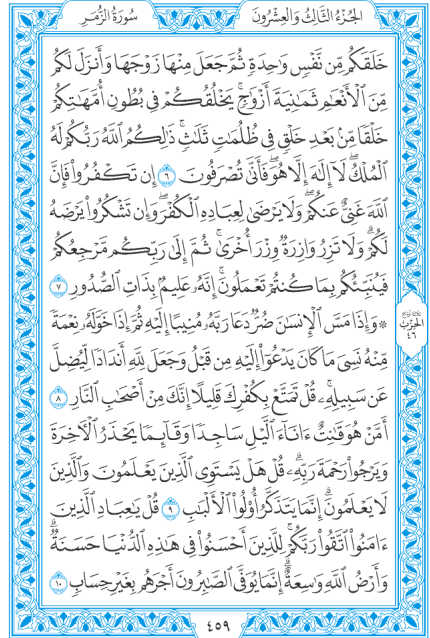 سُورَةُ الزُّمَرِ
الجُزْءُ الثَّالِثُ وَالعِشْرُونَ
خَلَقَكُم مِّن نَّفْسٖ وَٰحِدَةٖ ثُمَّ جَعَلَ مِنْهَا زَوْجَهَا وَأَنزَلَ لَكُم
مِّنَ ٱلْأَنْعَٰمِ ثَمَٰنِيَةَ أَزْوَٰجٖۚ يَخْلُقُكُمْ فِي بُطُونِ أُمَّهَٰتِكُمْ
خَلْقٗا مِّنۢ بَعْدِ خَلْقٖ فِي ظُلُمَٰتٖ ثَلَٰثٖۚ ذَٰلِكُمُ ٱللَّهُ رَبُّكُمْ لَهُ
ٱلْمُلْكُۖ لَآ إِلَٰهَ إِلَّا هُوَۖ فَأَنَّىٰ تُصْرَفُونَ ٦ إِن تَكْفُرُواْ فَإِنَّ
ٱللَّهَ غَنِيٌّ عَنكُمْۖ وَلَا يَرْضَىٰ لِعِبَادِهِ ٱلْكُفْرَۖ وَإِن تَشْكُرُواْ يَرْضَهُ
لَكُمْۗ وَلَا تَزِرُ وَازِرَةٞ وِزْرَ أُخْرَىٰۚ ثُمَّ إِلَىٰ رَبِّكُم مَّرْجِعُكُمْ
فَيُنَبِّئُكُم بِمَا كُنتُمْ تَعْمَلُونَۚ إِنَّهُۥ عَلِيمُۢ بِذَاتِ ٱلصُّدُورِ ٧
۞ وَإِذَا مَسَّ ٱلْإِنسَٰنَ ضُرّٞ دَعَا رَبَّهُۥ مُنِيبًا إِلَيْهِ ثُمَّ إِذَا خَوَّلَهُۥ نِعْمَةٗ
مِّنْهُ نَسِيَ مَا كَانَ يَدْعُوٓاْ إِلَيْهِ مِن قَبْلُ وَجَعَلَ لِلَّهِ أَندَادٗا لِّيُضِلَّ
عَن سَبِيلِهِۦۚ قُلْ تَمَتَّعْ بِكُفْرِكَ قَلِيلًا إِنَّكَ مِنْ أَصْحَٰبِ ٱلنَّارِ ٨
أَمَّنْ هُوَ قَٰنِتٌ ءَانَآءَ ٱلَّيْلِ سَاجِدٗا وَقَآئِمٗا يَحْذَرُ ٱلْأٓخِرَةَ
وَيَرْجُواْ رَحْمَةَ رَبِّهِۦۗ قُلْ هَلْ يَسْتَوِي ٱلَّذِينَ يَعْلَمُونَ وَٱلَّذِينَ
لَا يَعْلَمُونَۗ إِنَّمَا يَتَذَكَّرُ أُوْلُواْ ٱلْأَلْبَٰبِ ٩ قُلْ يَٰعِبَادِ ٱلَّذِينَ
ءَامَنُواْ ٱتَّقُواْ رَبَّكُمْۚ لِلَّذِينَ أَحْسَنُواْ فِي هَٰذِهِ ٱلدُّنْيَا حَسَنَةٞۗ
وَأَرْضُ ٱللَّهِ وَٰسِعَةٌۗ إِنَّمَا يُوَفَّى ٱلصَّٰبِرُونَ أَجْرَهُم بِغَيْرِ حِسَابٖ ١٠
الحِزْبِ
٤٦
٤٥٩